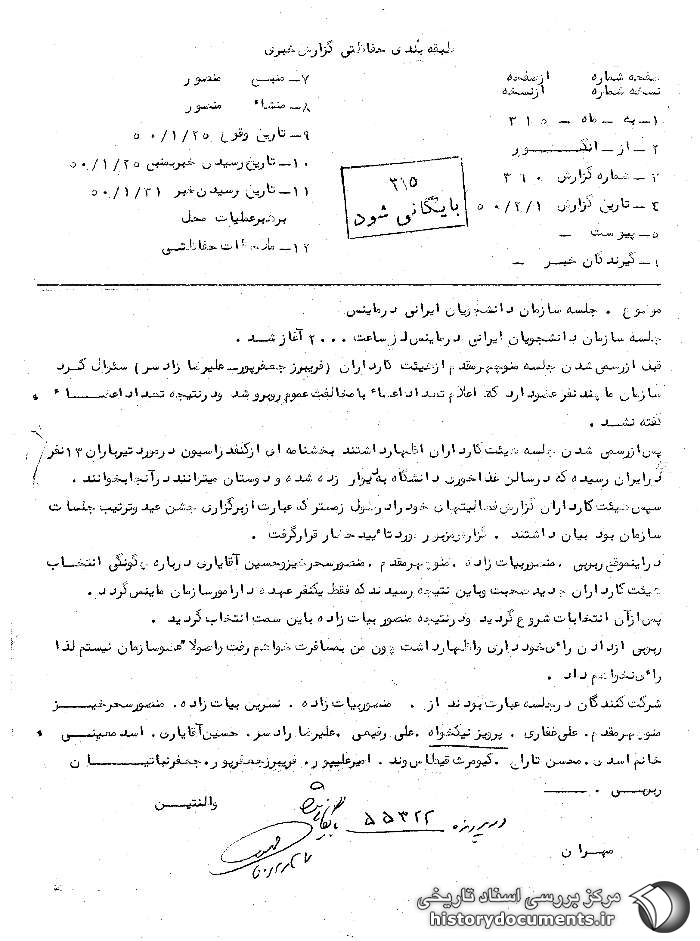 طبقه بندی حفاظتی گزارش خبری
صفحه شماره از صفحه
نسخه شماره از نسخه
۱ـ به ـ ماه ـ ۳۱۵
۲ـ از ـ
۳ـ شماره گزارش ۳۶۰
۴ـ تاریخ گزارش ۵۰/۲/۱
۵ـ پیوست ـ
۶ـ گیرندگان خبر ـ
۷ـ منبع منصور
۸ـ منشاء منصور
۹ـ تاریخ وقوع ۵۰/۱/۲۵
۱۰ـ تاریخ رسیدن خبر بمنبع ۵۰/۱/۲۵
۱۱ـ تاریخ رسیدن خبر ۵۰/۱/۳۱
برهبر عملیات محل
۱۲ـ ملاحظات حفاظتی
۳۱۵
بایگانی شود
موضوع . جلسه سازمان دانشجویان ایرانی در ماینس
جلسه سازمان دانشجویان ایرانی در ماینس از ساعت ۲۰۰۰ آغاز شد .
قبل از رسمی شدن جلسه منوچهر مقدم از هیئت کارداران (فریبرز جعفرپورـ علیرضا رادسر) سئوال کرد
سازمان ما چند نفر عضو دارد که اعلام تعداد اعضاء با مخالفت عموم روبرو شد و در نتیجه تعداد اعضاء
گفته نشد .
پس از رسمی شدن جلسه هیئت کارداران اظهار داشتند بخشنامه ای از کنفدراسیون در مورد تیرباران ۱۳ نفر
در ایران رسیده که در سالن غذاخوری دانشگاه به دیوار زده شده و دوستان میتوانند در آنجا بخوانند .
سپس هیئت کارداران گزارش فعالیتهای خود را در طول زمستر که عبارت از برگزاری جشن عید و ترتیب جلسات
سازمان بود بیان داشتند . گزارش مزبور مورد تائید حضار قرار گرفت .
در اینموقع ربویی . منصور بیات زاده . منوچهر مقدم . منصور سحرخیز و حسین آقایاری درباره چگونگی انتخاب
هیئت کارداران جدید صحبت و باین نتیجه رسیدند که فقط یکنفر عهده دار امور سازمان ماینس گردد .
پس از آن انتخابات شروع گردید و در نتیجه منصور بیات زاده باین سمت انتخاب گردید .
ربویی از دادن رای خودداری و اظهار داشت چون من بمسافرت خواهم رفت و اصولا" عضو سازمان نیستم لذا
رای نخواهم داد .
شرکت کنندگان در جلسه عبارت بودند از . منصور بیات زاده . نسرین بیات زاده . منصور سحرخیز
منوچهر مقدم . علی غفاری . پرویز نیکخواه . علی رفیعی . علیرضا رادسر . حسین آقایاری . اسد معینی .
خانم اسدی . محسن تاران . کیومرث قیطاسوند . امیر علیپور . فریبرز جعفرپور . جعفر نباتیان
ربویی .
والنتین
در پرونده ۵۵۳۲۲ بایگانی شود
مهران
مرکز بررسی اسناد تاریخی
historydocuments.ir